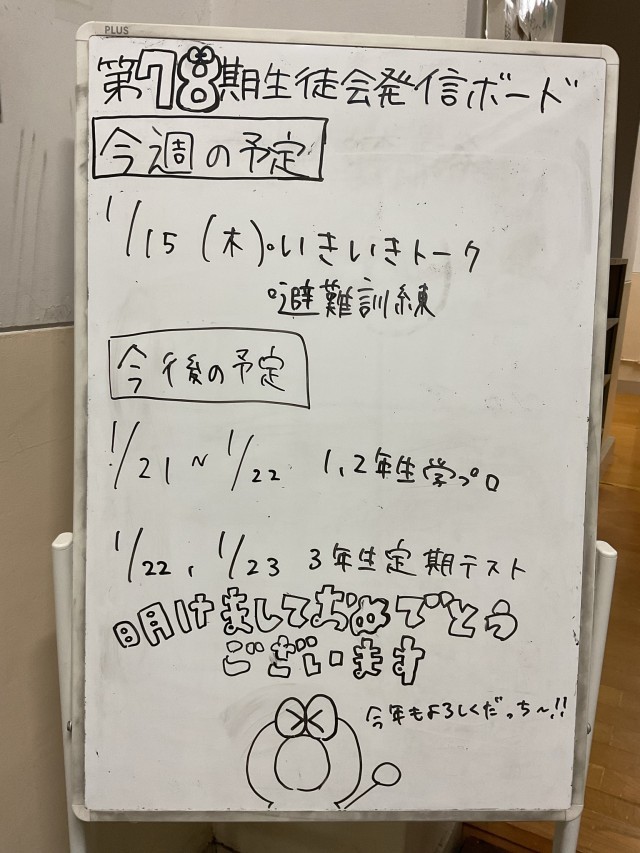 PLUS
第78期生徒会発信ボード
今週の予定
1/15(木)。いきいきトーク
。避難訓練
今後の予定
1/21~1/22 1,2年生学プロ
1/22、1/23 3年生定期テスト
明けましておめでとう
ございます
今年もよろしくだっち〜!!